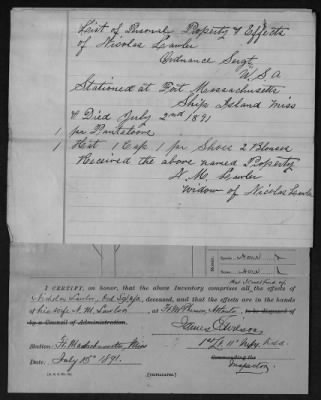 List of Personal Property & Effects
of Nicolas Lawler
Ordnance Sergt
U.S.A
Stationed at Fort Massachusetts
Ship Island Miss
& Died July 2nd 1891
1 pr Pantaloons
1 Hat 1 Cap 1 pr Shoes 2 Blouses
Received the above named Property
N. M. Lawler
widow of Nicolas Lawler
I CERTIFY, on honor, that the above Inventory comprises all the effects of
Nicholas Lawler, Ord Sgt, deceased, and that the effects are in the hands
of his wife N. M. Lawler at Ft McPherson, Atlanta to be disposed of
by a Council of Administration.
Station: Ft. Massachusetts, Miss
Commanding the
Date: July 15th 1891.
Inspector